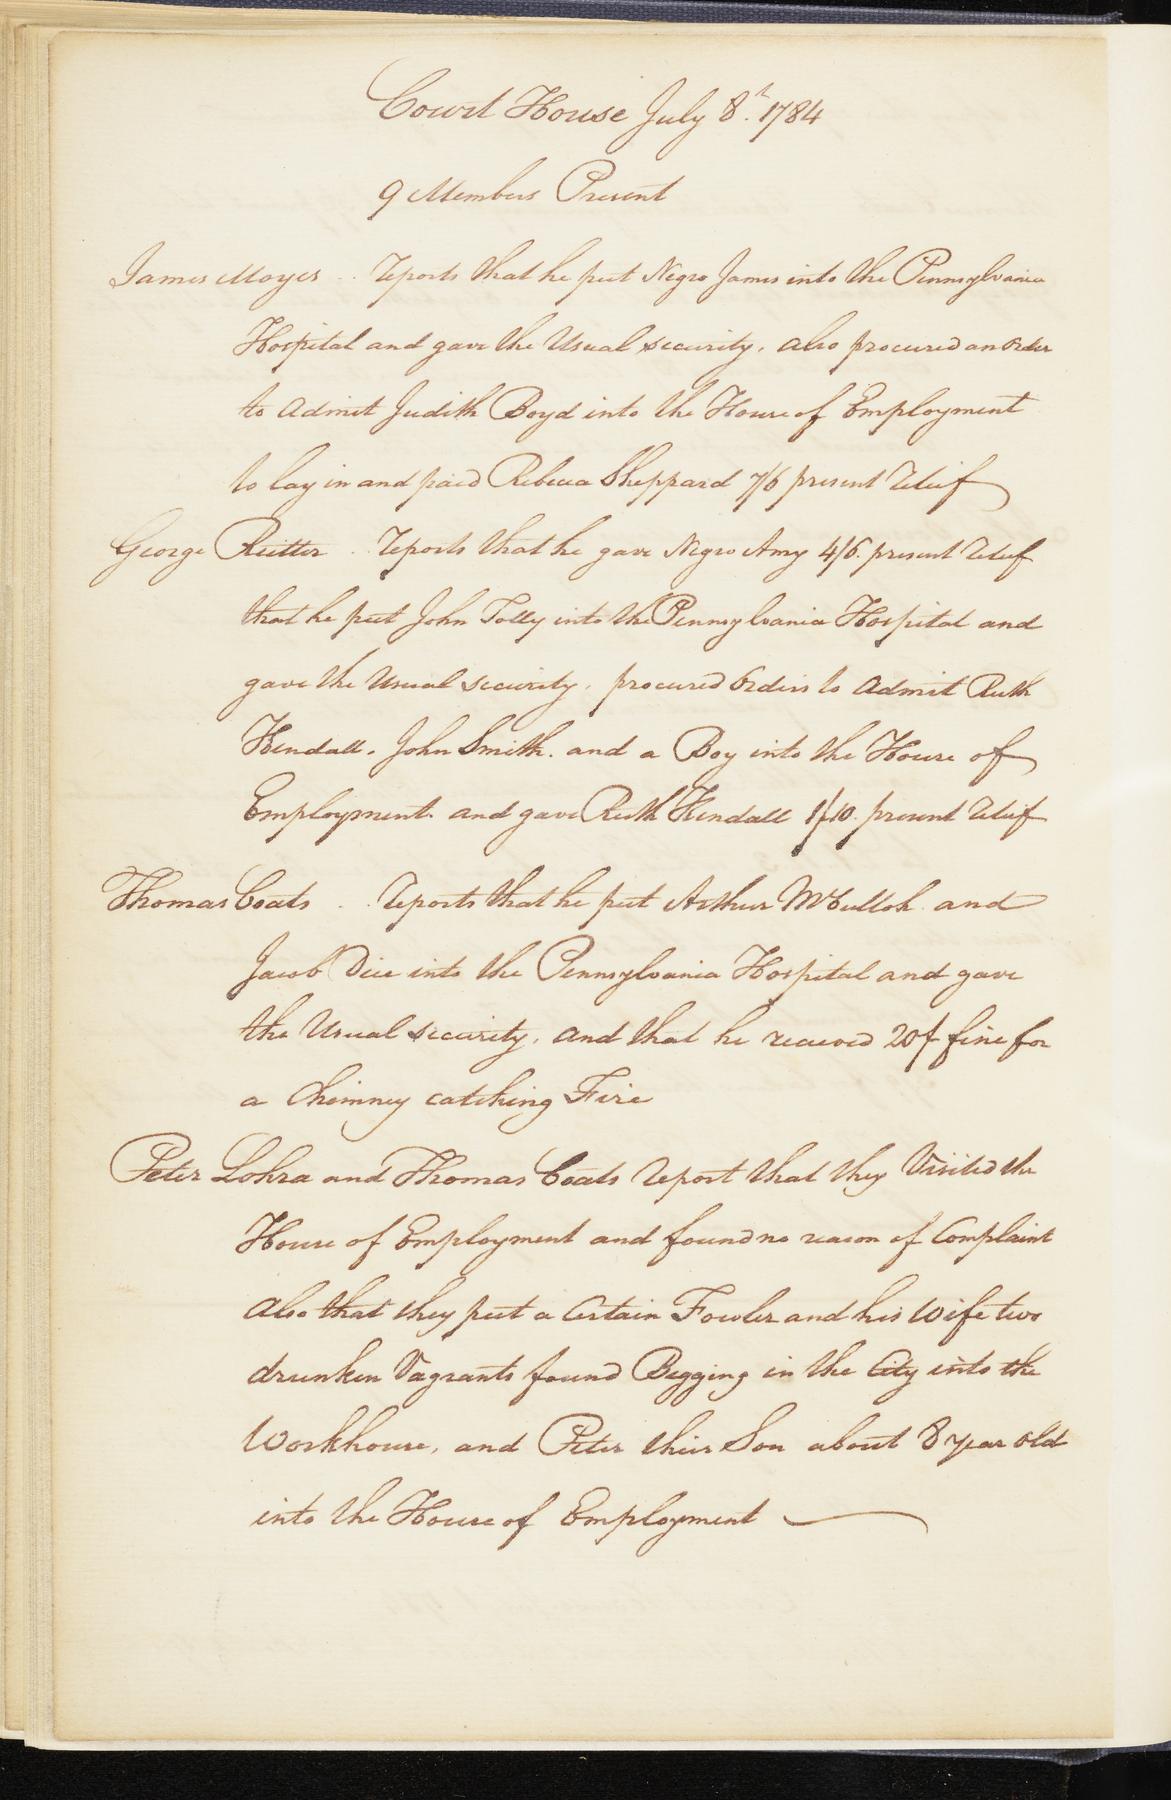 Court House July 8th. 1784
9 Members Present
James Moyes .. reports that he put Negro James into the Pennsylvania
Hospital and gave the Usual security, also procured an Order
to Admit Judith Boyd into the House of Employment
to lay in and paid Rebecca Sheppard 7/6 present Relief
George Reitter .. reports that he gave Negro Amy 4/6. present Relief
that he put John Tolly into the Pennsylvania Hospital and
gave the Usual security, procured Orders to Admit Ruth
Kendall, John Smith. and a Boy into the House of
Employment. and gave Ruth Kendall 1/10. present Relief
Thomas Coats .. reports that he put Arthur McCulloh and
Jacob Dice into the Pennsylvania Hospital and gave
the Usual security, and that he received 20/ fine for
a Chimney catching Fire
Peter Lohra and Thomas Coats report that they Visited the
House of Employment and found no reason of Complaint
Also that they put a Certain Fowler and his Wife two
drunken Vagrants found Begging in the City into the
Workhouse, and Peter their Son about 8 year old
into the House of Employment